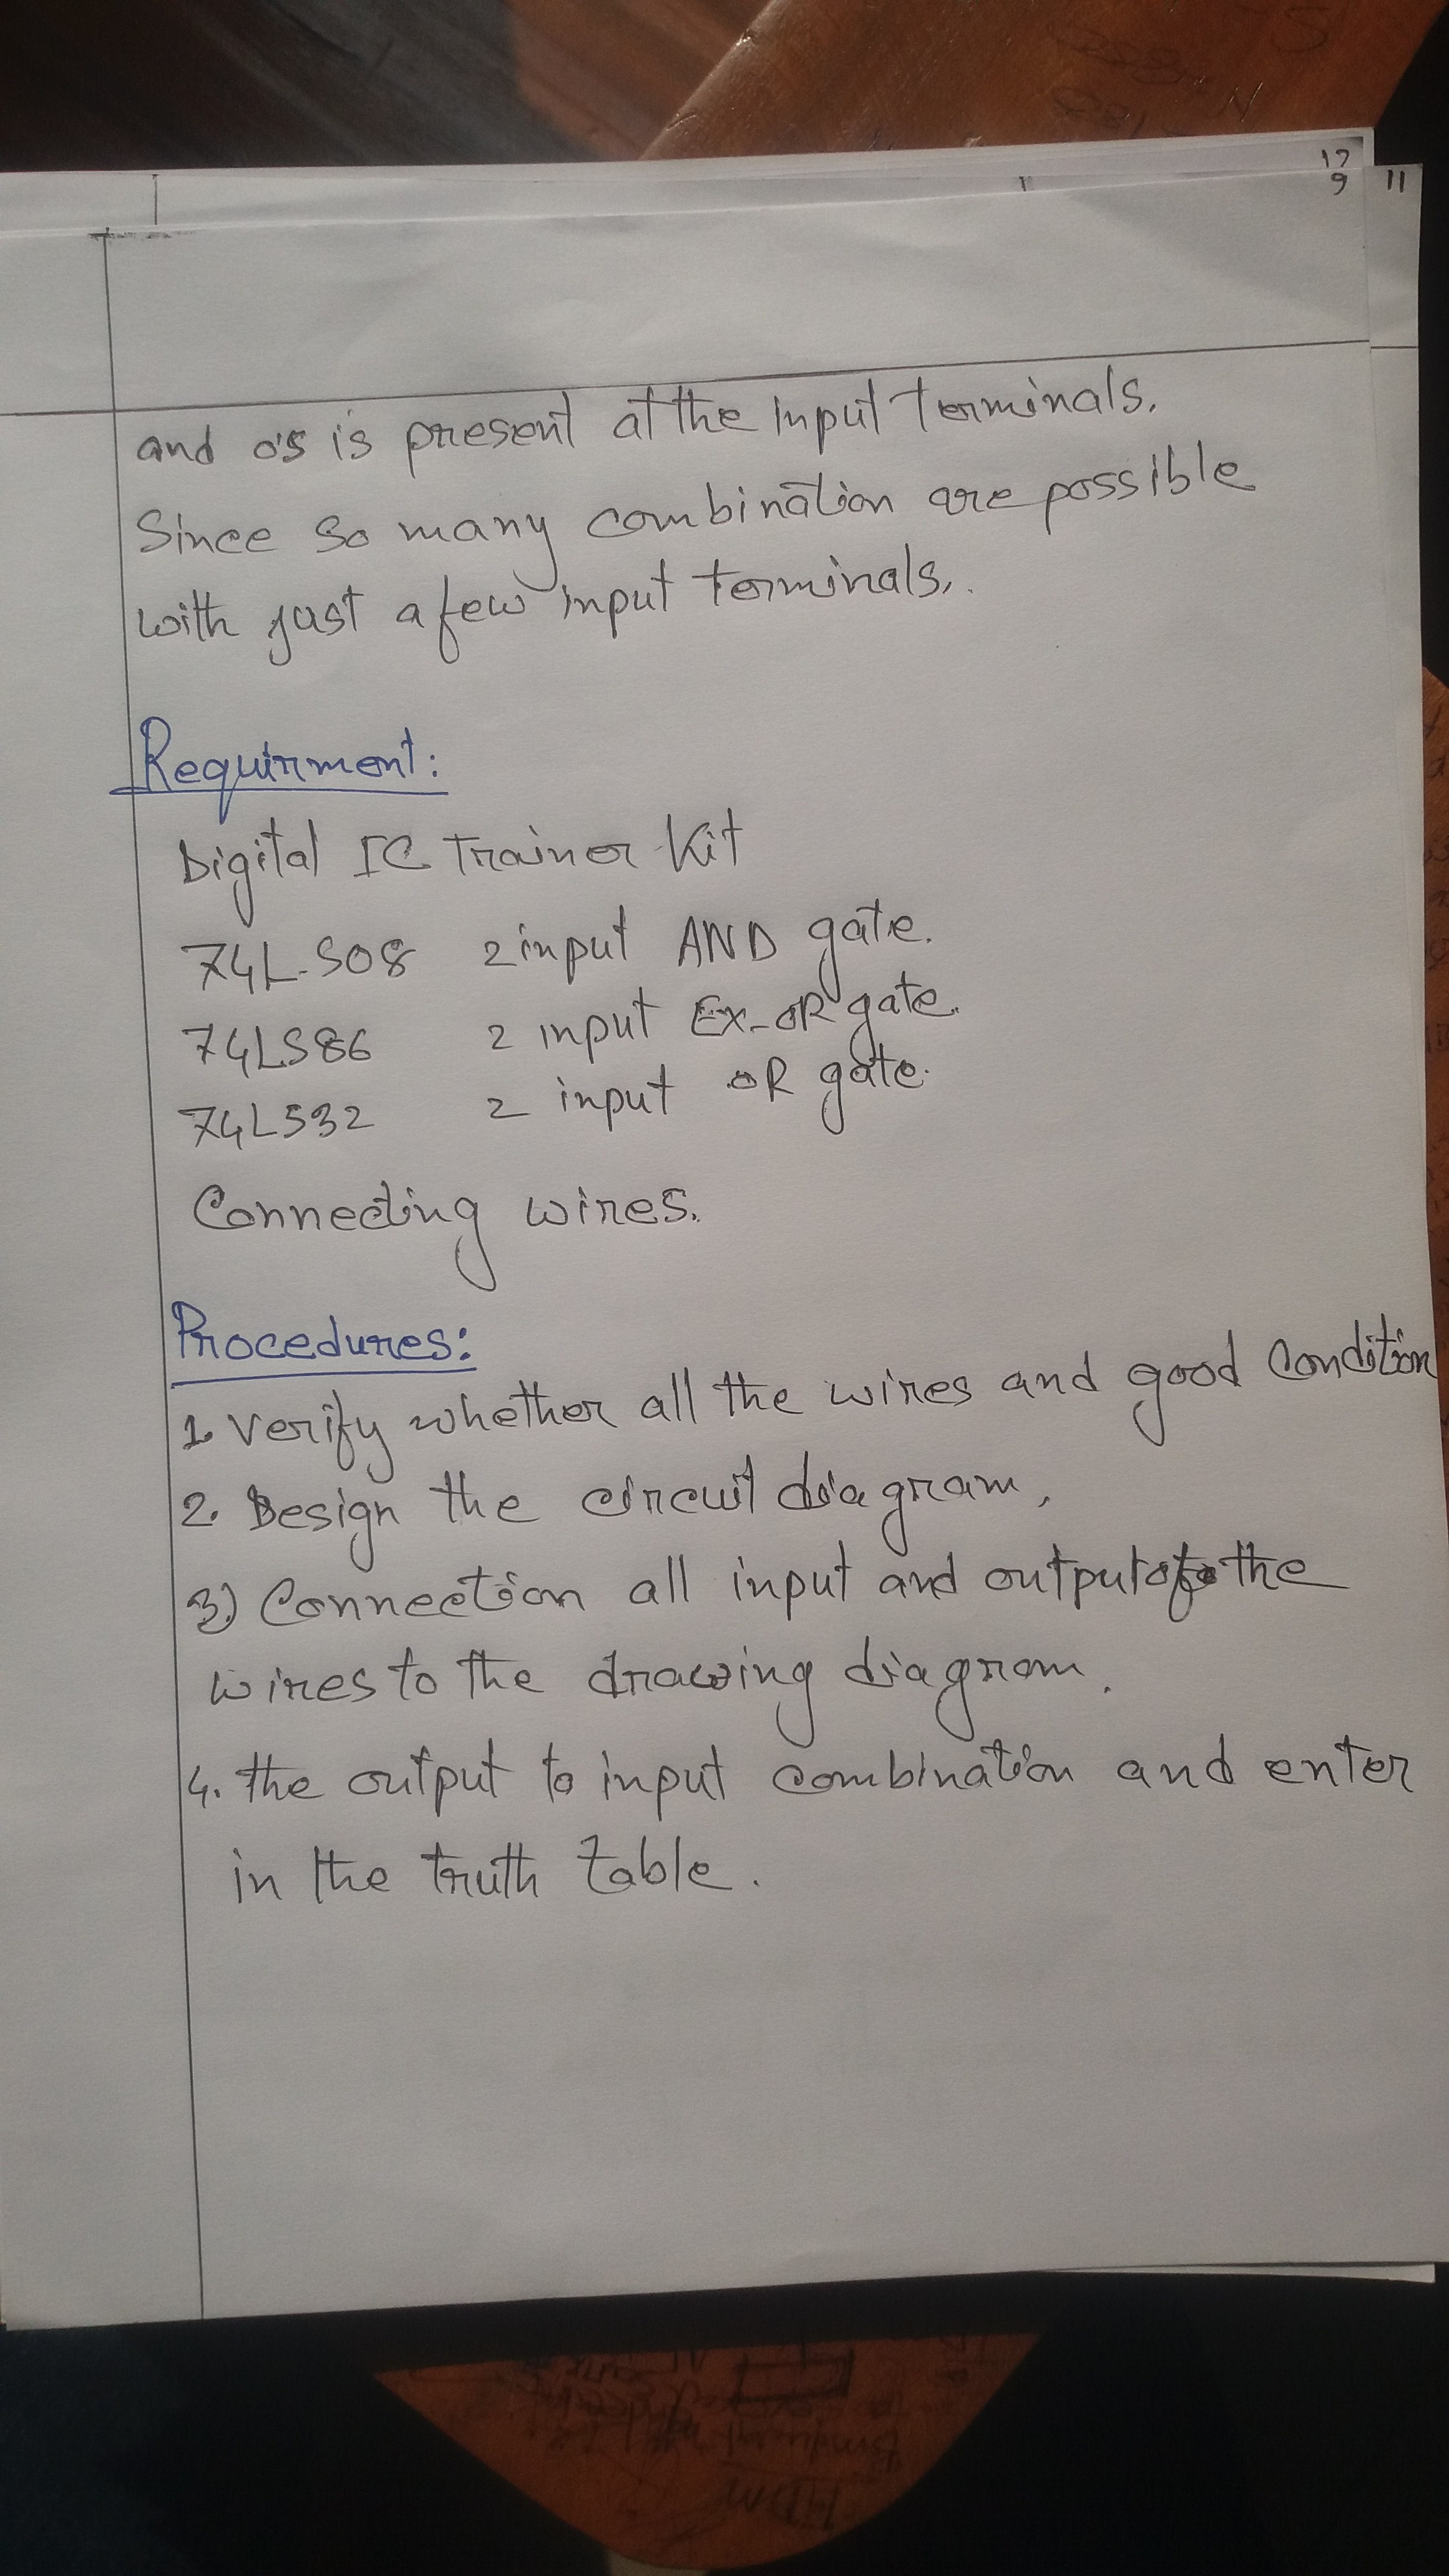 17
9
11
and o's is present at the input terminals.
Since so many combination are possible
with just a few input terminals.
Requirment:
Digital IC Trainer Kit
74LS08 2 input AND gate.
74LS86 2 input Ex-OR gate.
74LS32 2 input OR gate.
Connecting wires.
Procedures:
1. Verify whether all the wires and good condition
2. Design the circuit diagram.
3) Connection all input and output of the
wires to the drawing diagram.
4. the output to input combination and enter
in the truth table.